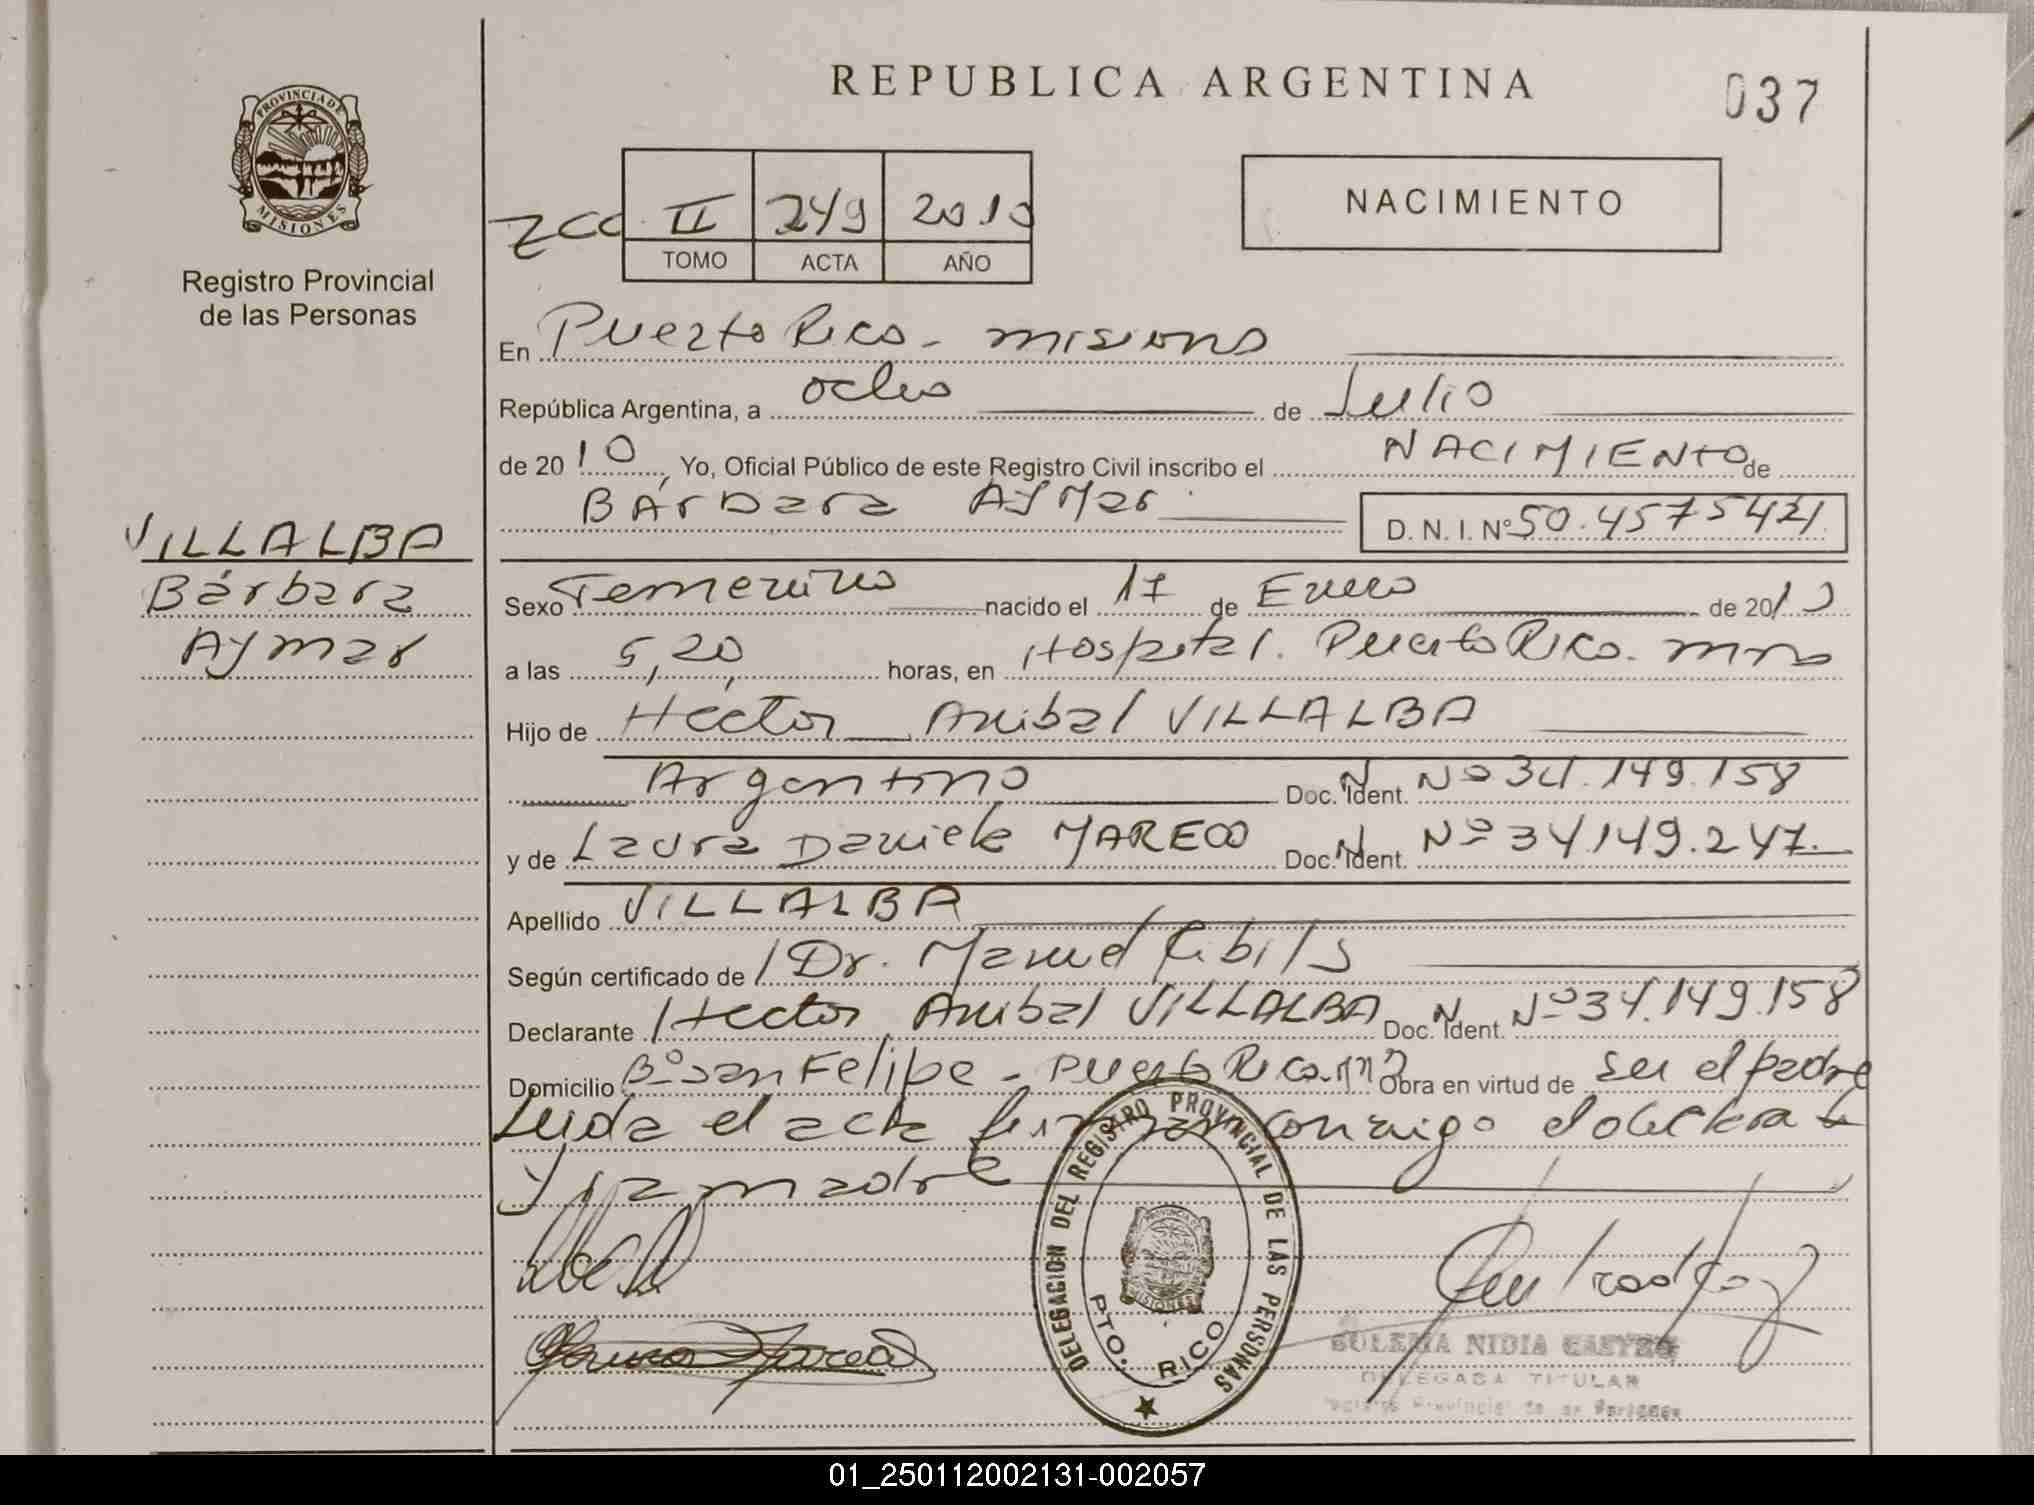 REPUBLICA ARGENTINA
037
PROVINCIA DE
MISIONES
Registro Provincial
de las Personas
NACIMIENTO
II 249 2010
TOMO ACTA AÑO
En Puerto Rico - misiones
República Argentina, a ocho de Julio
de 2010, Yo, Oficial Público de este Registro Civil inscribo el NACIMIENTO de
Bárbara Aymar D. N. I. Nº 50.457542
VILLALBA
Bárbara
Aymar
Sexo Femenino nacido el 17 de Enero de 2010
a las 5,20, horas, en Hospital. Puerto Rico. mns
Hijo de Hector Anibal VILLALBA
Argentino Doc. Ident. N Nº 34.149.158
y de Laura Daniela MARECO Doc. Ident. N Nº 34.149.247.
Apellido VILLALBA
Según certificado de Dr. Manuel Cibils
Declarante Hector Anibal VILLALBA Doc. Ident. N Nº 34.149.158
Domicilio Bº San Felipe - Puerto Rico. Mns Obra en virtud de ser el padre
Leida el acta firman conmigo el declarante
y la madre
DELEGACION DEL REGISTRO PROVINCIAL DE LAS PERSONAS
PROVINCIA DE
MISIONES
PTO. RICO
NIDIA CASTRO
DELEGADA TITULAR
Registro Provincial de las Personas
01_250112002131-002057